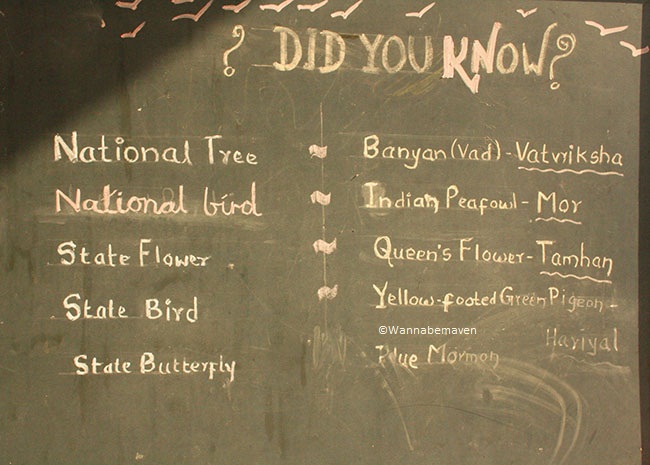 ? DID YOU KNOW?
National Tree Banyan (Vad) - Vatvriksha
National bird Indian Peafowl - Mor
State Flower Queen's Flower - Tamhan
State Bird Yellow-footed Green Pigeon -
©Wannabemaven
Hariyal
State Butterfly Blue Mormon